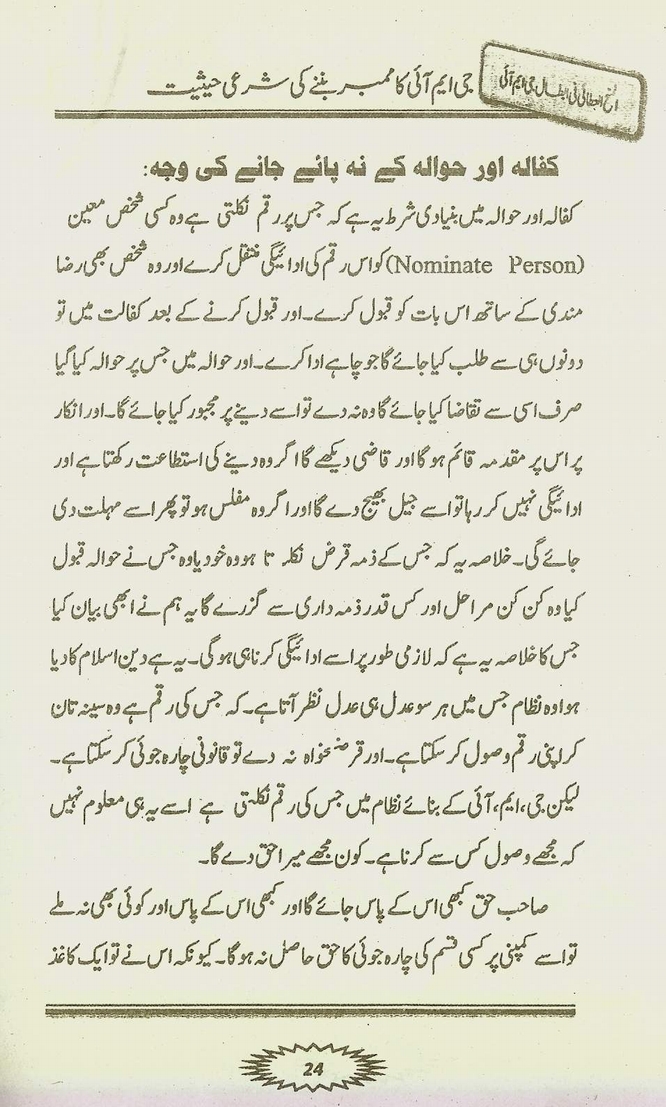 جی ایم آئی کا ممبر بننے کی شرعی حیثیت
کفالہ اور حوالہ کے نہ پائے جانے کی وجہ:
کفالہ اور حوالہ میں بنیادی شرط یہ ہے کہ جس پر رقم نکلتی ہے وہ کسی شخص معین
(Nominate Person) کو اس رقم کی ادائیگی منتقل کرے اور وہ شخص بھی رضا
مندی کے ساتھ اس بات کو قبول کرے۔ اور قبول کرنے کے بعد کفالت میں تو
دونوں ہی سے طلب کیا جائے گا جو چاہے ادا کرے۔ اور حوالہ میں جس پر حوالہ کیا گیا
صرف اسی سے تقاضا کیا جائے گا وہ نہ دے تو اسے دینے پر مجبور کیا جائے گا۔ اور انکار
پر اس پر مقدمہ قائم ہو گا اور قاضی دیکھے گا اگر وہ دینے کی استطاعت رکھتا ہے اور
ادائیگی نہیں کر رہا تو اسے جیل بھیج دے گا اور اگر وہ مفلس ہو تو پھر اسے مہلت دی
جائے گی۔ خلاصہ یہ کہ جس کے ذمہ قرض نکلتا ہو وہ خود یا وہ جس نے حوالہ قبول
کیا وہ کن کن مراحل اور کس قدر ذمہ داری سے گزرے گا یہ ہم نے ابھی بیان کیا
جس کا خلاصہ یہ ہے کہ لازمی طور پر اسے ادائیگی کرنا ہی ہو گی۔ یہ ہے دین اسلام کا دیا
ہوا وہ نظام جس میں ہر سو عدل ہی عدل نظر آتا ہے۔ کہ جس کی رقم ہے وہ سینہ تان
کر اپنی رقم وصول کر سکتا ہے۔ اور قرضخواہ نہ دے تو قانونی چارہ جوئی کر سکتا ہے۔
لیکن جی، ایم، آئی کے بنائے نظام میں جس کی رقم نکلتی ہے اسے یہ ہی معلوم نہیں
کہ مجھے وصول کس سے کرنا ہے۔ کون مجھے میرا حق دے گا۔
صاحب حق کبھی اس کے پاس جائے گا اور کبھی اس کے پاس اور کوئی بھی نہ ملے
تو اسے کمپنی پر کسی قسم کی چارہ جوئی کا حق حاصل نہ ہو گا۔ کیونکہ اس نے تو ایک کاغذ
24